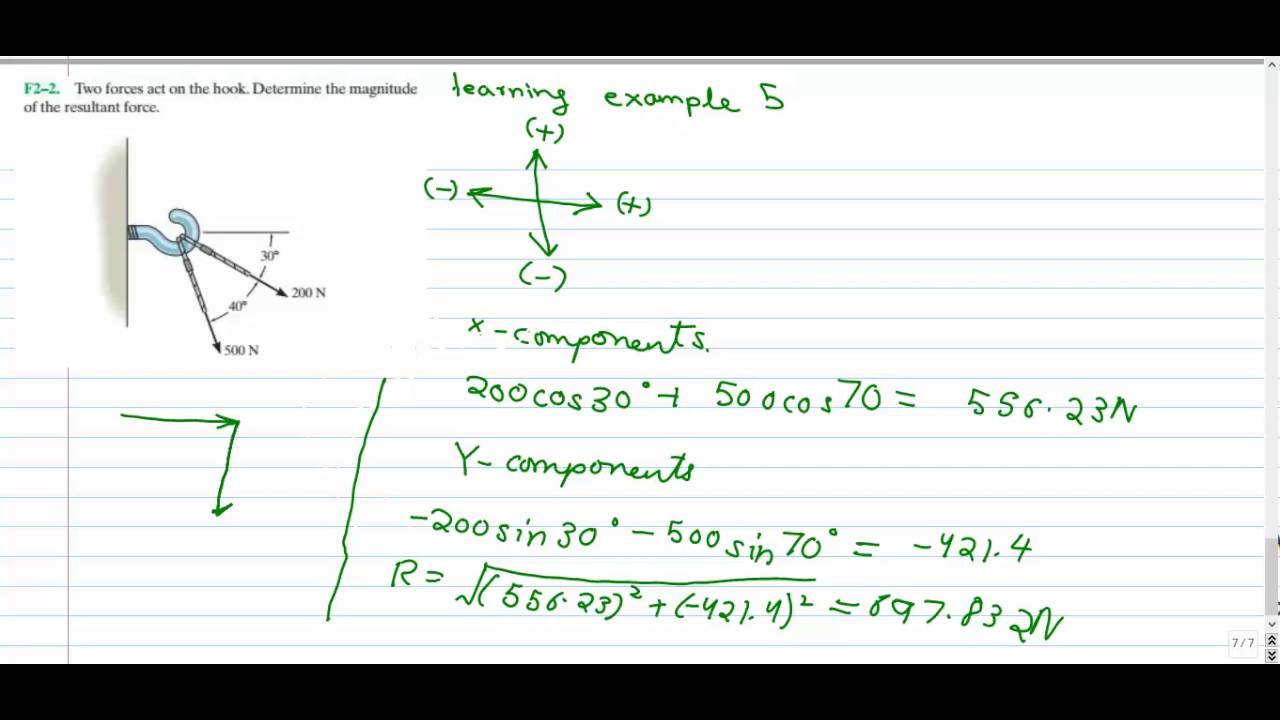 F2–2. Two forces act on the hook. Determine the magnitude
of the resultant force.
30°
200 N
40°
500 N
learning example 5
(+)
(-) (+)
(-)
x-components.
200cos30° + 500cos70 = 556.23N
Y-components
-200sin30° - 500sin70° = -421.4
R = √(556.23)² + (-421.4)² = 697.832N
7/7